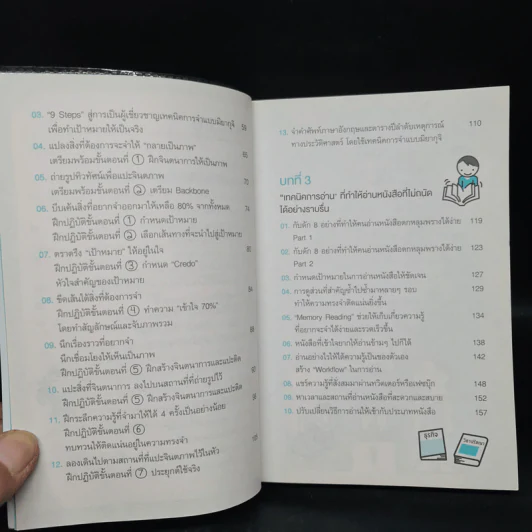 03. "9 Steps" สู่การเป็นผู้เชี่ยวชาญเทคนิคการจำแบบมียากูจิ
เพื่อทำเป้าหมายให้เป็นจริง
04. แปลงสิ่งที่ต้องการจะจำให้ "กลายเป็นภาพ"
เตรียมพร้อมขั้นตอนที่ ① ฝึกจินตนาการให้เป็นภาพ
05. ถ่ายรูปทิวทัศน์เพื่อแปะจินตภาพ
เตรียมพร้อมขั้นตอนที่ ② เตรียม Backbone
06. บีบเค้นสิ่งที่อยากจำออกมาให้เหลือ 80% จากทั้งหมด
ฝึกปฏิบัติขั้นตอนที่ ① กำหนดเป้าหมาย
ฝึกปฏิบัติขั้นตอนที่ ② เลือกเส้นทางที่จะนำไปสู่เป้าหมาย
07. ตราตรึง "เป้าหมาย" ให้อยู่ในใจ
ฝึกปฏิบัติขั้นตอนที่ ③ กำหนด "Credo"
หัวใจสำคัญของเป้าหมาย
08. ขีดเส้นใต้สิ่งที่ต้องการจำ
ฝึกปฏิบัติขั้นตอนที่ ④ ทำความ "เข้าใจ 70%"
โดยทำสัญลักษณ์และจับภาพรวม
09. นึกเรื่องราวที่อยากจำ
นึกเชื่อมโยงให้เห็นเป็นภาพ
ฝึกปฏิบัติขั้นตอนที่ ⑤ ฝึกสร้างจินตนาการและแปะติด
10. แปะสิ่งที่จินตนาการ ลงไปบนสถานที่ที่ถ่ายรูปไว้
ฝึกปฏิบัติขั้นตอนที่ ⑤ ฝึกสร้างจินตนาการและแปะติด
11. ฝึกระลึกความรู้ที่จำมาให้ได้ 4 ครั้งเป็นอย่างน้อย
ฝึกปฏิบัติขั้นตอนที่ ⑥
ทบทวนให้ติดแน่นอยู่ในความทรงจำ
12. ลองเดินไปตามสถานที่ที่แปะจินตภาพไว้ในหัว
ฝึกปฏิบัติขั้นตอนที่ ⑦ ประยุกต์ใช้จริง
13. จำคำศัพท์ภาษาอังกฤษและตารางปีลำดับเหตุการณ์ 110
ทางประวัติศาสตร์ โดยใช้เทคนิคการจำแบบมียากูจิ
บทที่ 3
"เทคนิคการอ่าน" ที่ทำให้อ่านหนังสือที่ไม่ถนัด
ได้อย่างราบรื่น
01. กับดัก 8 อย่างที่ทำให้คนอ่านหนังสือตกหลุมพรางได้ง่าย 119
Part 1
02. กับดัก 8 อย่างที่ทำให้คนอ่านหนังสือตกหลุมพรางได้ง่าย 123
Part 2
03. กำหนดเป้าหมายในการอ่านหนังสือให้ชัดเจน 127
04. การดูส่วนที่สำคัญซ้ำไปซ้ำมาหลายๆ รอบ 129
ทำให้ความทรงจำดีแน่นยิ่งขึ้น
05. "Memory Reading" ช่วยให้เก็บเกี่ยวความรู้ 134
ที่อยากจะจำได้ง่ายและรวดเร็วขึ้น
06. หนังสือที่เข้าใจยากให้อ่านข้ามๆ ไปก็ได้ 138
07. อ่านอย่างไรให้ได้ความรู้เป็นของตัวเอง 142
สร้าง "Workflow" ในการอ่าน
08. แชร์ความรู้ที่สั่งสมมาผ่านทวิตเตอร์หรือเฟซบุ๊ก 148
09. หาเวลาและสถานที่อ่านหนังสือที่สะดวกและสบาย 152
10. ปรับเปลี่ยนวิธีการอ่านให้เข้ากับประเภทหนังสือ 157
ธุรกิจ